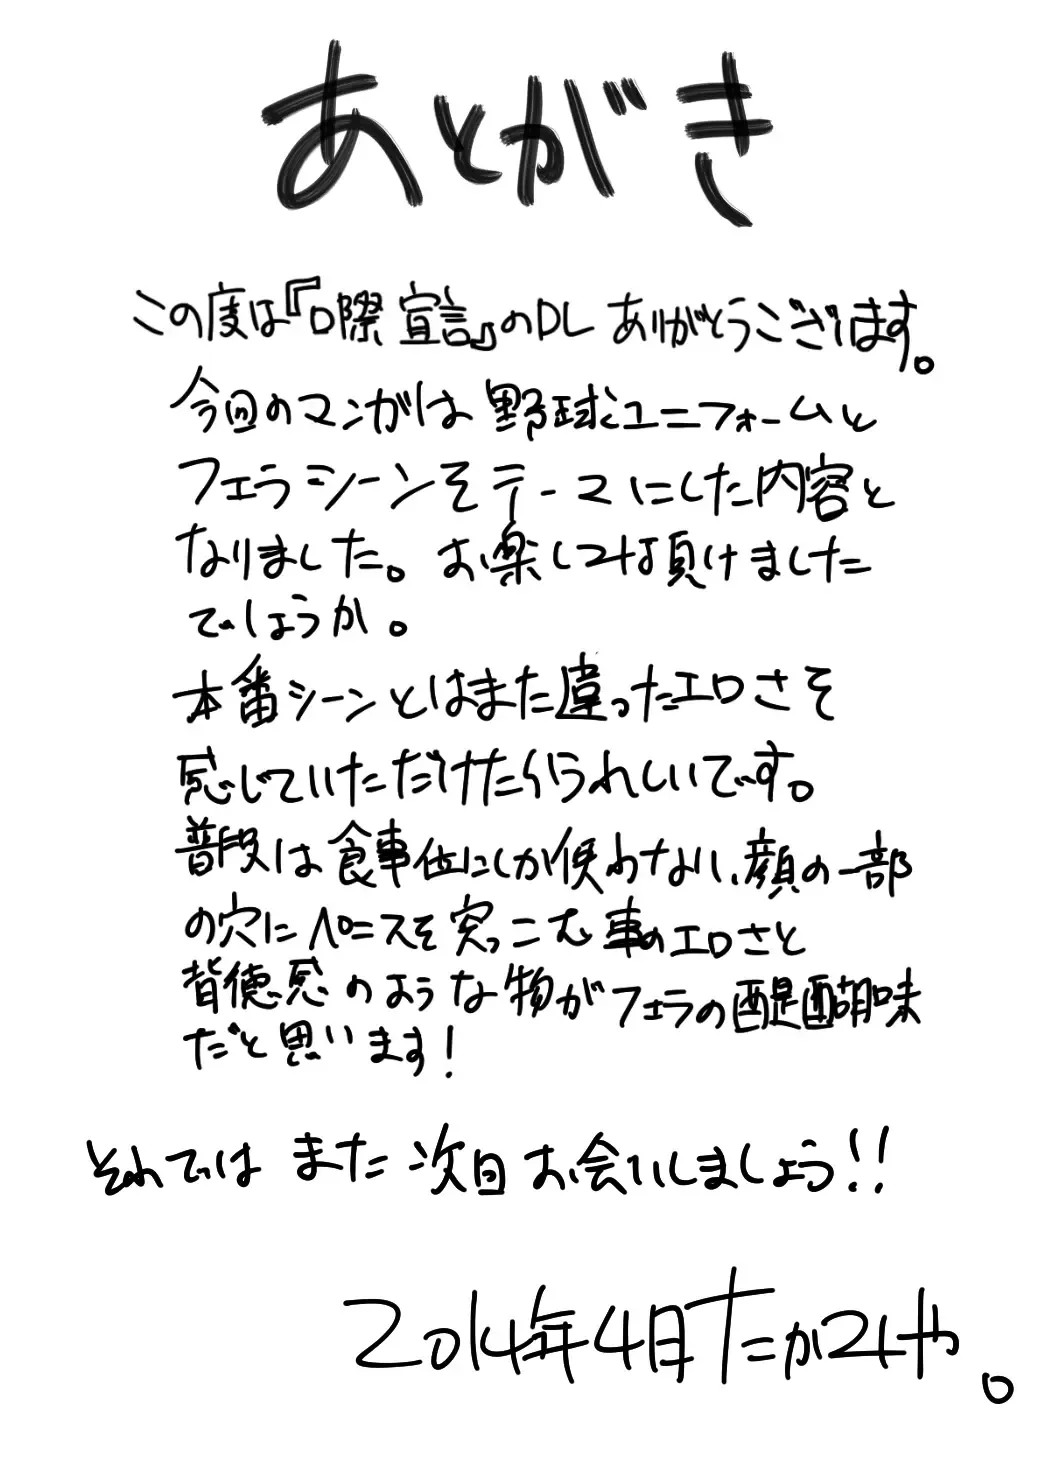 あとがき
この度は『口際宣言』のDLありがとうございます。
今回のマンガは野球ユニフォームと
フェラシーンをテーマにした内容と
なりました。お楽しみ頂けました
でしょうか。
本番シーンとはまた違ったエロさを
感じていただけたらうれしいです。
普段は食事位にしか使わない、顔の一部
の穴にペニスを突っこむ事のエロさと
背徳感のような物がフェラの醍醐味
だと思います！
それではまた次回お会いしましょう!!
2014年4月